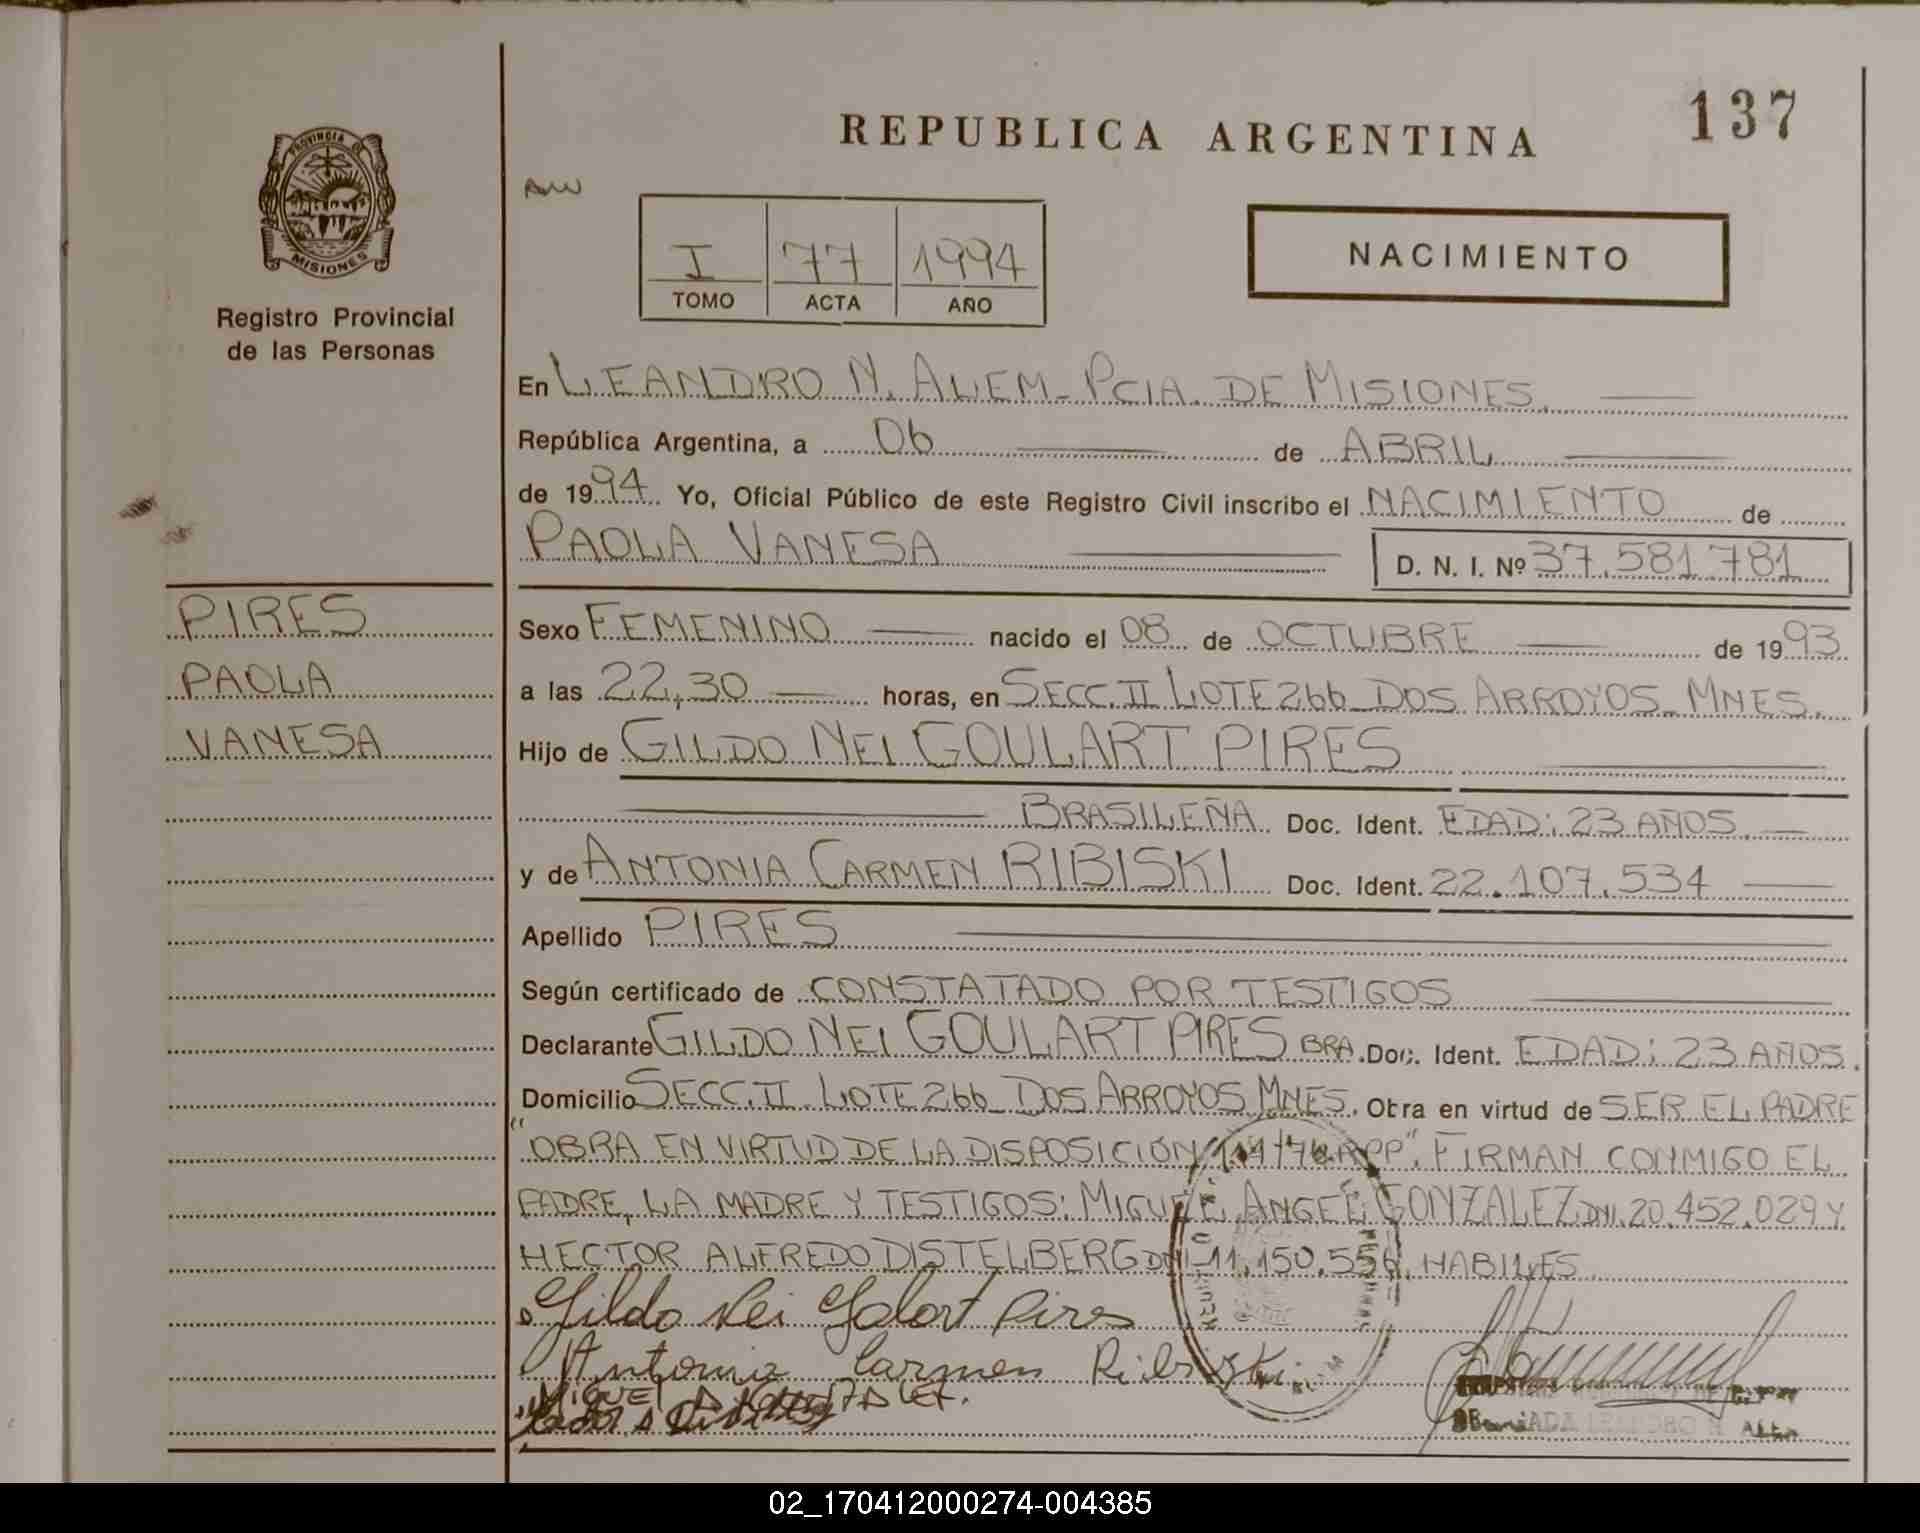 REPUBLICA ARGENTINA
137
PROVINCIA DE
MISIONES
Registro Provincial
de las Personas
I 77 1994
TOMO ACTA AÑO
NACIMIENTO
En LEANDRO N. ALEM - PCIA. DE MISIONES.
República Argentina, a 06 de ABRIL
de 1994 Yo, Oficial Público de este Registro Civil inscribo el NACIMIENTO de
PAOLA VANESA D. N. I. Nº 37.581.781
PIRES
PAOLA
VANESA
Sexo FEMENINO nacido el 08 de OCTUBRE de 1993
a las 22,30 horas, en SECC. II LOTE 266 DOS ARROYOS - MNES.
Hijo de GILDO NEI GOULART PIRES
BRASILEÑA Doc. Ident. EDAD: 23 AÑOS.
y de ANTONIA CARMEN RIBISKI Doc. Ident. 22.107.534
Apellido PIRES
Según certificado de CONSTATADO POR TESTIGOS
Declarante GILDO NEI GOULART PIRES BRA. Doc. Ident. EDAD: 23 AÑOS.
Domicilio SECC. II LOTE 266 DOS ARROYOS MNES. Obra en virtud de SER EL PADRE
"OBRA EN VIRTUD DE LA DISPOSICIÓN RPP". FIRMAN CONMIGO EL
PADRE, LA MADRE Y TESTIGOS: MIGUEL ANGEL GONZALEZ DNI. 20.452.029 Y
HECTOR ALFREDO DISTELBERG DNI - 11.150.556. HABILES.
Gildo Nei Golart Pires
Antonia Carmen Ribiski
MIGUEL A GONZALEZ.
02_170412000274-004385